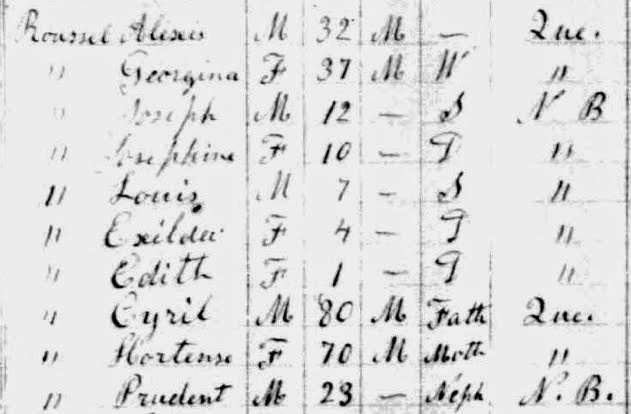 Roussel Alexis M 32 M — Que.
" Georgina F 37 M W "
" Joseph M 12 — S N B
" Josephine F 10 — D "
" Louis M 7 — S "
" Exilda F 4 — D "
" Edith F 1 — D "
" Cyril M 80 M Fath Que.
" Hortense F 70 M Moth "
" Prudent M 23 — Neph N. B.